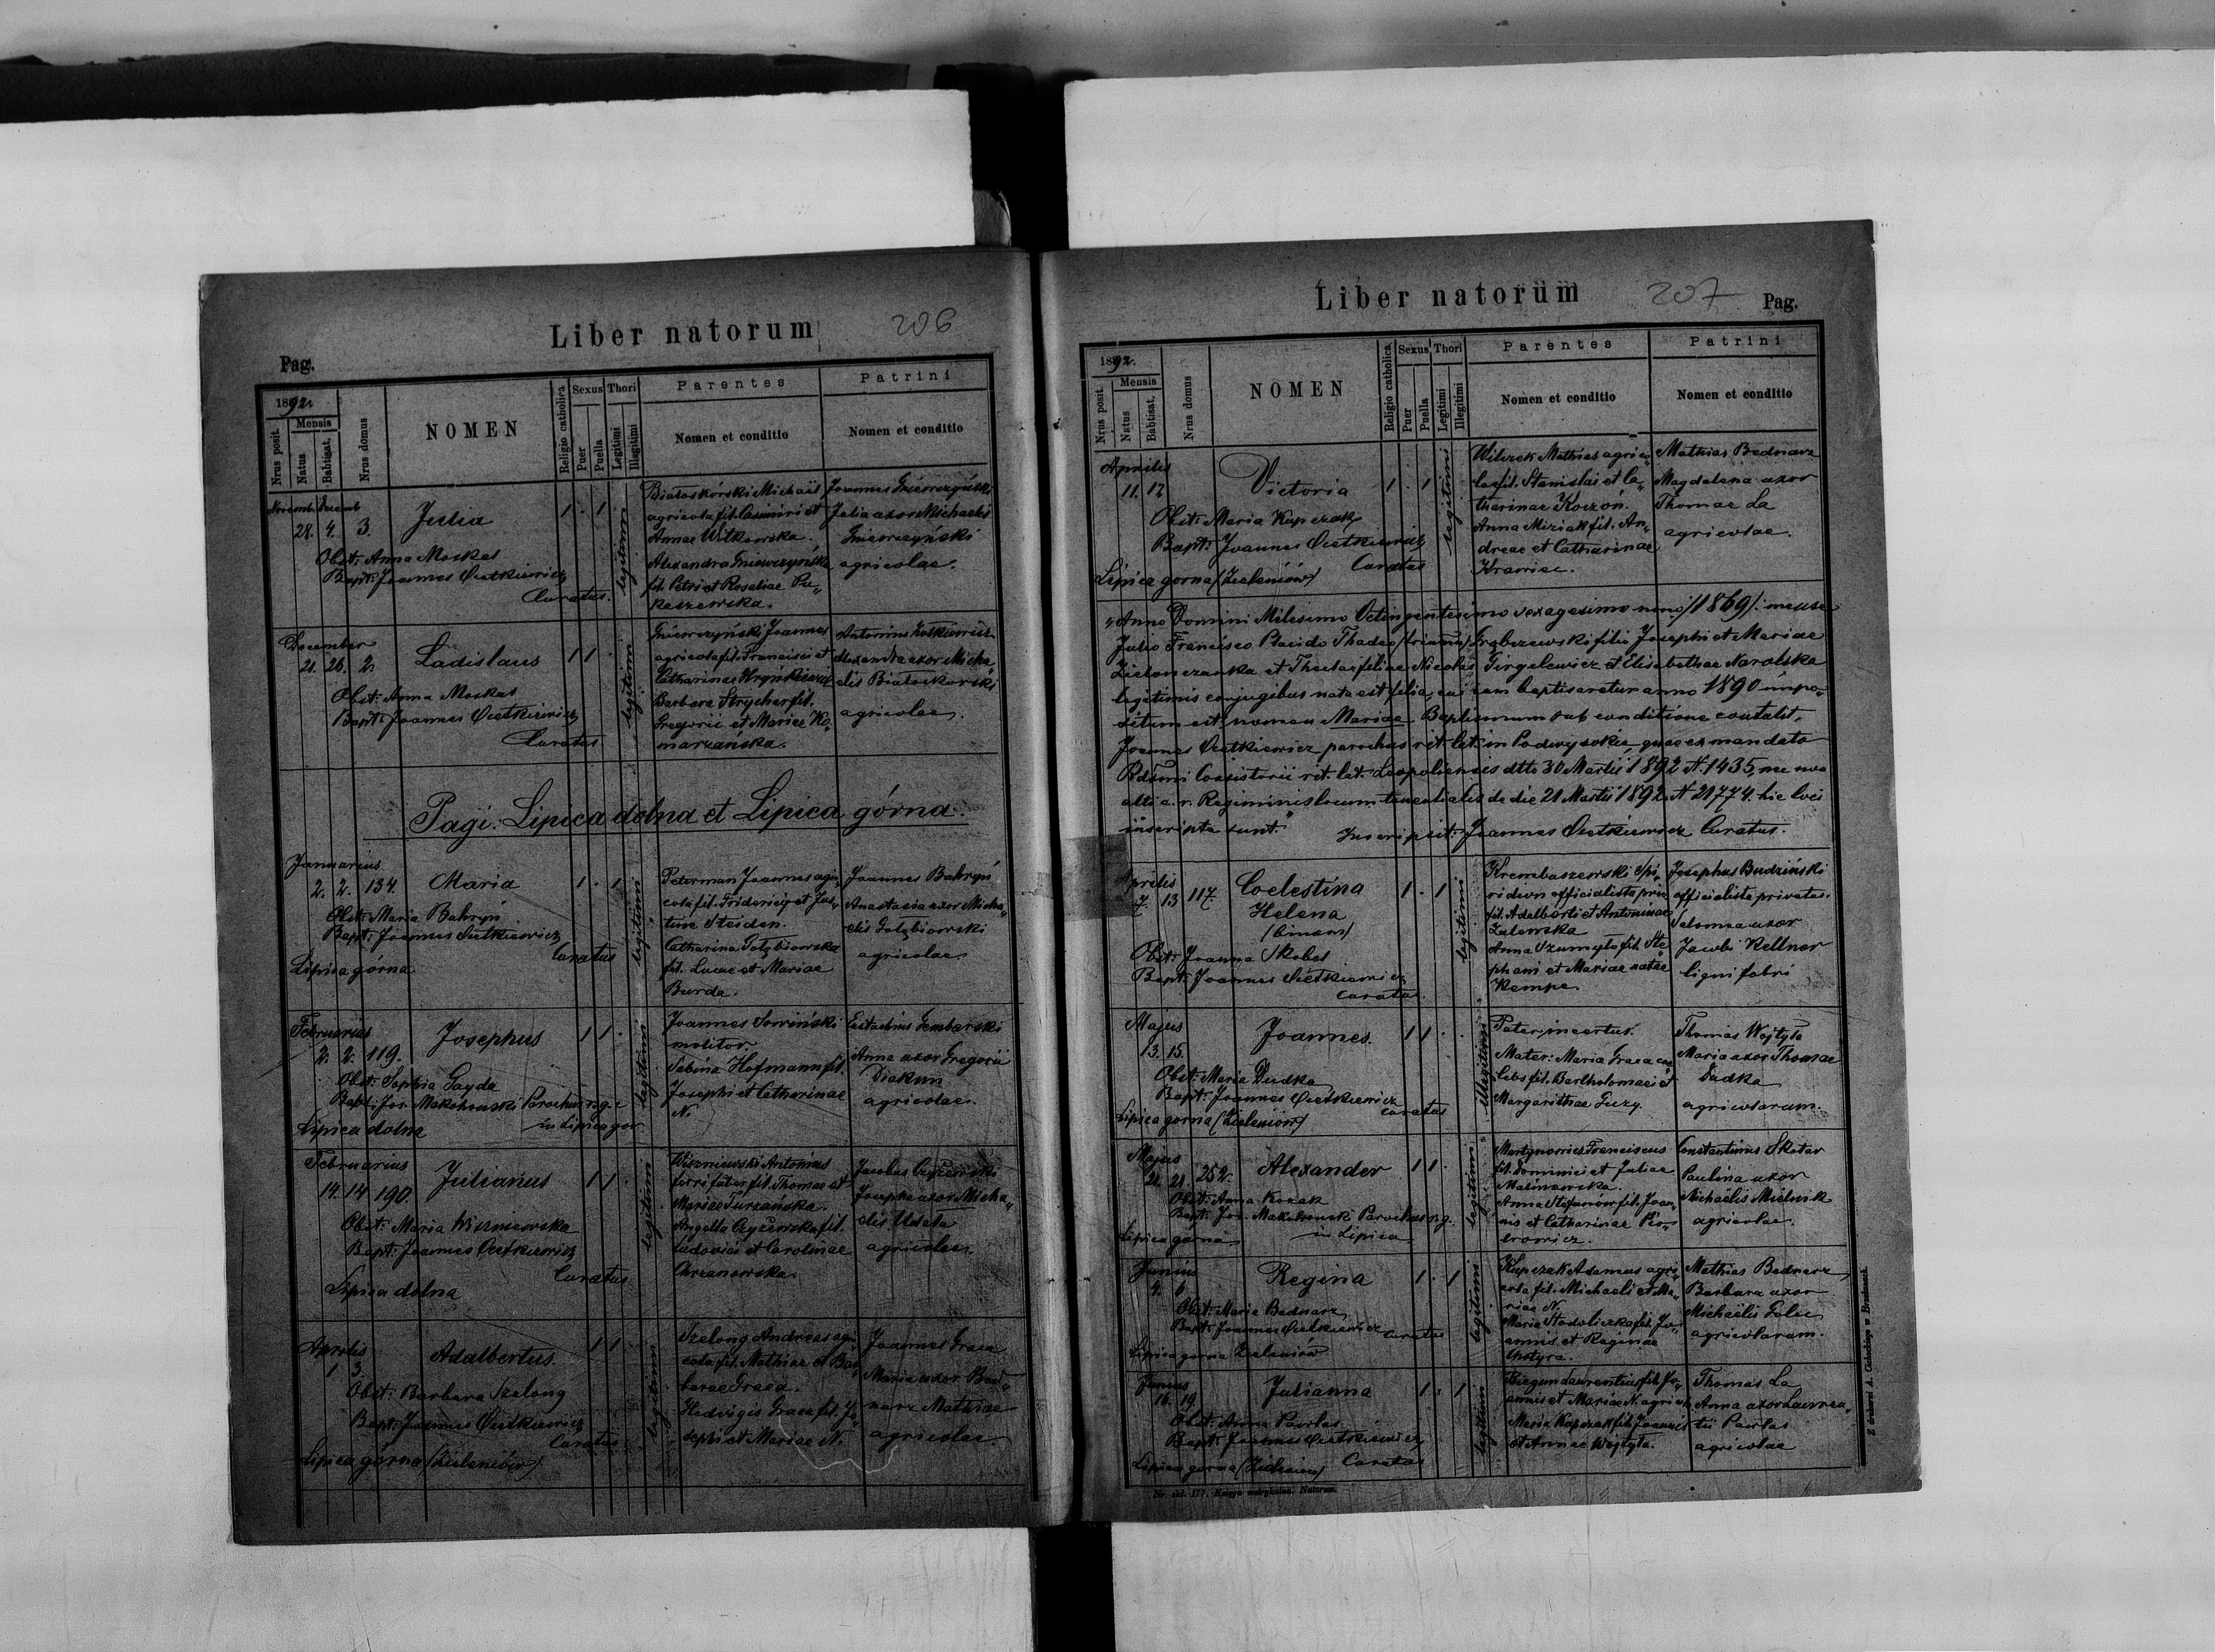 Liber natorum 206
Pag.
1892.
Nrus posit.
Mensis
Natus
Babtisat.
Nrus domus
NOMEN
Religio catholica
Sexus
Puer
Puella
Thori
Legitimi
Illegitimi
Parentes
Nomen et conditio
Patrini
Nomen et conditio
Novemb. Decemb
28. 4. 3. Julia 1 . 1 .
Obst: Anna Moskal
Bapt: Joannes Cietkiewicz
Curatus.
legitimi
Białoskórski Michaël
agricola fil. Casimiri et
Annae Witkowska.
Alexandra Gniewczyńska
fil. Petri et Rosaliae
Joannes Gniewczyński
Julia uxor Michaelis
Gniewczyński
agricolae.
December
21. 26. 2. Ladislaus 1 1 .
Obst: Anna Moskal
Bapt: Joannes Cietkiewicz
Curatus
legitimi
Gniewczyński Joannes
agricola fil. Francisci et
Catharinae
Barbara Strychar fil.
Gregorii et Mariae Ko„
marzańska.
Antonius
Alexandra uxor Micha„
elis Białoskorski
agricolae.
Pagi: Lipica dolna et Lipica górna.
Januarius
2. 2. 134. Maria 1 . 1 .
Obst: Maria Bahryń
Bapt: Joannes Cietkiewicz
Curatus
Lipica górna
legitimi
Peterman Joannes agri„
cola fil. Friderici et Jus„
tine Steiden.
Catharina Gołębiowska
fil. Lucae et Mariae
Burda.
Joannes Bahryń
Anastasia uxor Micha„
elis Gołębiowski
agricolae.
Februarius
2. 2. 119. Josephus 1 1 .
Obst: Sophia Gayda
Bapt: Jos. Makohonski Parochus r. g. c
in Lipica gor.
Lipica dolna
legitimi
Joannes Sowiński
molitor.
Sabina Hofmann fil.
Josephi et Catharinae
N.
Eustachius Gemberski
Anna uxor Gregorii
Diakun
agricolae.
Februarius
14. 14. 190. Julianus 1 1 .
Obst: Maria Wiszniewska
Bapt: Joannes Cietkiewicz
Curatus
Lipica dolna
legitimi
Wiszniewski Antonius
ferri faber fil. Thomae et
Mariae Turzańska.
Angella Czyżewska fil.
Ludovici et Carolinae
Chrzanowska.
Jacobus Czyżewski
Josepha uxor Micha„
elis
agricolae.
Aprilis
1 3. Adalbertus 1 1 .
Obst: Barbara Szelong
Bapt: Joannes Cietkiewicz
Curatus
Lipica górna (Zieleniów)
legitimi
Szelong Andreas agri„
cola fil. Mathiae et Bar„
barae Graca.
Hedvigis Graca fil. Jo„
sephi et Mariae N.
Joannes Graca
Maria uxor Bed„
narz Mathiae
agricolae.
Liber natorum 207 Pag.
1892.
Nrus posit.
Mensis
Natus
Babtisat.
Nrus domus
NOMEN
Religio catholica
Sexus
Puer
Puella
Thori
Legitimi
Illegitimi
Parentes
Nomen et conditio
Patrini
Nomen et conditio
Aprilis
11. 17 Victoria 1 . 1 .
Obst: Maria Kupczak
Bapt: Joannes Cietkiewicz
Curatus
Lipica gorna (Zieleniów)
legitimi
Wilczek Mathias agrico„
la fil. Stanislai et Ca„
tharinae Koczoń.
Anna Miziak fil. An„
dreae et Catharinae
Krawiec.
Mathias Bednarz
Magdalena uxor
Thomae La
agricolae.
„Anno Domini Milesimo Octingentesimo sexagesimo nono /1869/: mense
Julio Francisco Placido Thadeo (trium) Grębczewski filio Josephi et Mariae
Zielonczanka et Theclae filiae Nicolai Girgelewicz et Elisabethae Narolska
legitimis conjugibus nata est filia, cui cum baptisaretur anno 1890 impo„
situm est nomen Mariae. Baptismum sub conditione contulit,
Joannes Cietkiewicz parochus rit. lat. in Podwysokie quae ex mandato
Rdssmi Consistorii rit. lat. Leopoliensis dtto 30 Martii 1892 N. 1435, nec non
alti c. r. Regiminis locum tenentialis de die 21 Martii 1892 N. 21774. hic loci
inscripta sunt” Inscripsit: Joannes Cietkiewicz Curatus.
Aprilis
7. 13 117. Coelestina 1 . 1 .
Helena
(binom)
Obst: Joanna Skobel
Bapt: Joannes Cietkiewicz
Curatus.
legitimi
Krembaszewski Spi„
ridion officialista priv.
fil. Adalberti et Antoninae
Zalewska
Anna Szumyło fil. Ste„
phani et Mariae natae
Kempe.
Josephus Budziński
officialista privatus.
Salomea uxor
Jacobi Kellner
ligni fabri
Majus
13. 15. Joannes. 1 1 . .
Obst: Maria Dudka
Bapt: Joannes Cietkiewicz
Curatus
Lipica gorna (Zieleniów)
illegitimi
Pater incertus.
Mater: Maria Graca cae„
lebs fil. Bartholomaei et
Margarithae Guzy.
Thomas Wojtyła
Maria uxor Thomae
Dudka
agricolarum.
Majus
21. 21. 252. Alexander 1 1 .
Obst: Anna Kozak
Bapt: Jos. Makohonski Parochus r. g.
in Lipica
Lipica gorna
legitimi
Martynowicz Franciscus
fil. Dominici et Juliae
Malinowska.
Anna Stefanów fil. Joan„
nis et Catharinae Pio„
trowicz.
Constantinus Skotar
Paulina uxor
Michaëlis Mielnik
agricolae.
Junius
4. 6 Regina 1 . 1
Obst: Maria Bednarz
Bapt: Joannes Cietkiewicz
Curatus
Lipica gorna Zieleniów
legitimi
Kupczak Adamus agri„
cola fil. Michaeli et Ma„
riae N.
Maria Stadoliczka fil. Jo„
annis et Reginae
Chstyra.
Mathias Bednarz
Barbara uxor
Michaëlis Golec
agricolarum.
Junius
16. 19. Julianna 1 . 1
Obst: Anna Parlas
Bapt: Joannes Cietkiewicz
Curatus
Lipica gorna (Zieleniów)
legitimi
Biegun Laurentius fil. Jo„
annis et Mariae N. agricola
Maria Kupczak fil. Joannis
et Annae Wojtyła.
Thomas La
Anna uxor Lauren„
tii Parlas
agricolae
Nr. skł. 177. Księga metrykalna. Natorum.
Z drukarni A. Cichockiego w Brzeżanach.